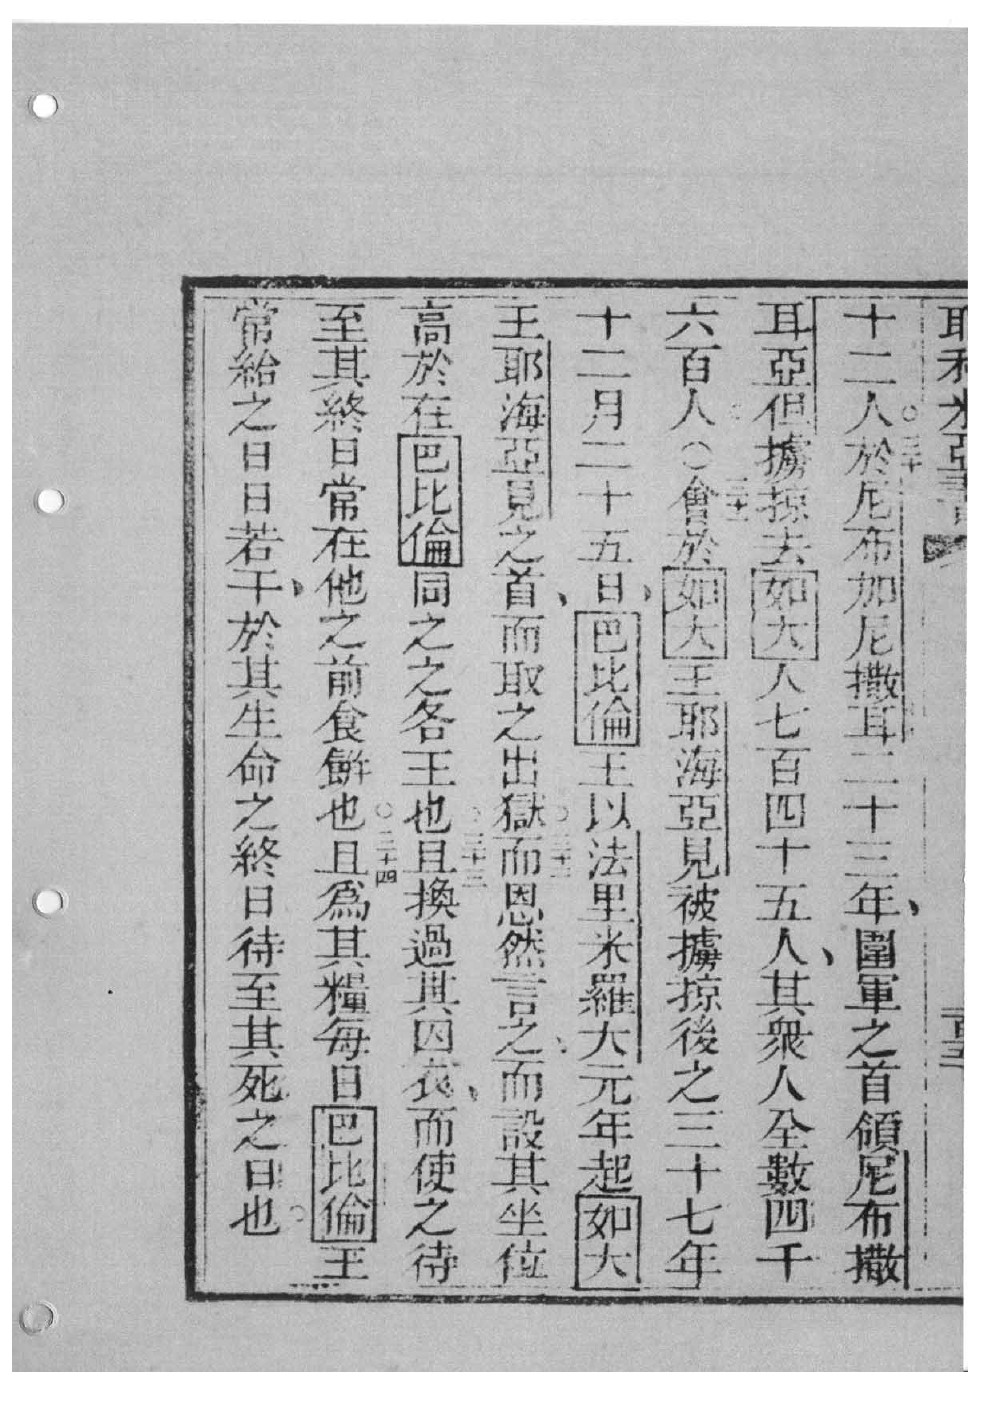 耶利米亞書
十二人於尼布加尼撒耳二十三年、圍軍之首領尼布撒
耳亞但擄掠去如大人七百四十五人、其衆人全數四千
六百人○會於如大王耶海亞見被擄掠後之三十七年
十二月二十五日、巴比倫王以法里米羅大元年起如大
王耶海亞見之首、而取之出獄而恩然言之、而設其坐位
高於在巴比倫同之之各王也且換過其囚衣、而使之待
至其終日常在他之前食餅也且爲其糧每日巴比倫王
常給之日日若干、於其生命之終日待至其死之日也。
○三十
三十一
○三十二
○三十三
○三十四